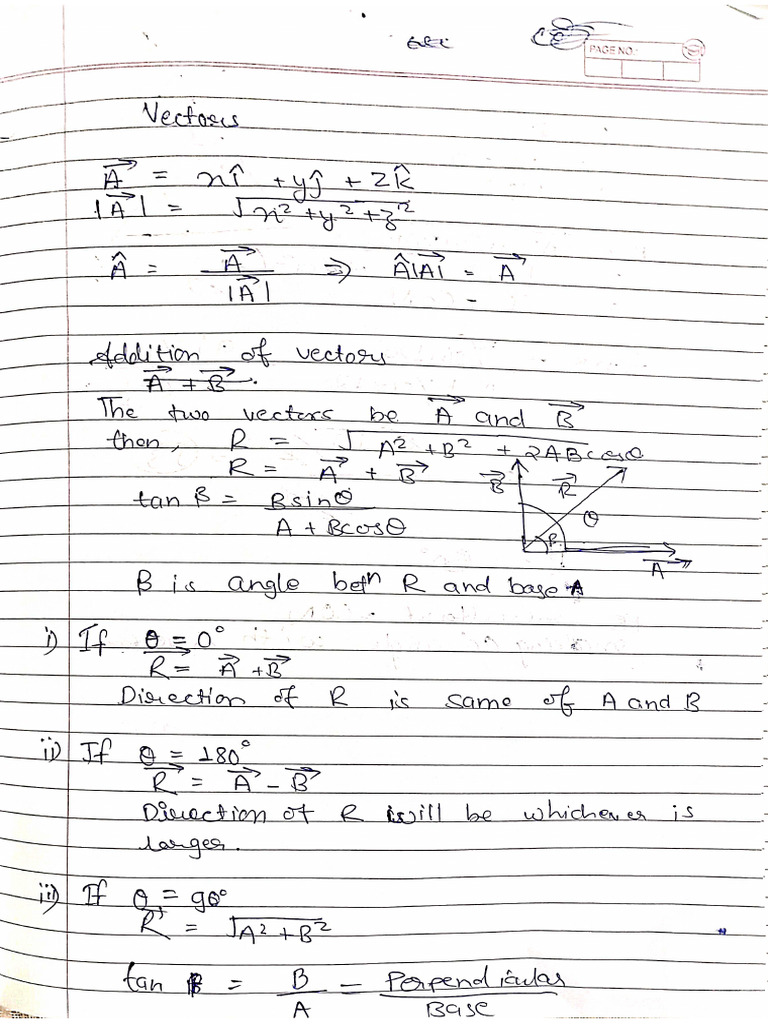 PAGE NO.:
Vectors
A⃗ = xî + yĵ + zk̂
|A⃗| = √x² + y² + z²
Â = A⃗ / |A⃗| ⇒ Â|A⃗| = A⃗
Addition of vectors
A⃗ + B⃗.
The two vectors be A⃗ and B⃗
then, R = √A² + B² + 2ABcosθ
R = A⃗ + B⃗
tan β = Bsinθ / A + Bcosθ
B⃗ R⃗ θ β A⃗
β is angle betn R and base A
i) If θ = 0°
R⃗ = A⃗ + B⃗
Direction of R is same of A and B
ii) If θ = 180°
R⃗ = A⃗ - B⃗
Direction of R will be whichever is
larger.
iii) If θ = 90°
R⃗ = √A² + B²
tan β = B / A = Perpendicular / Base